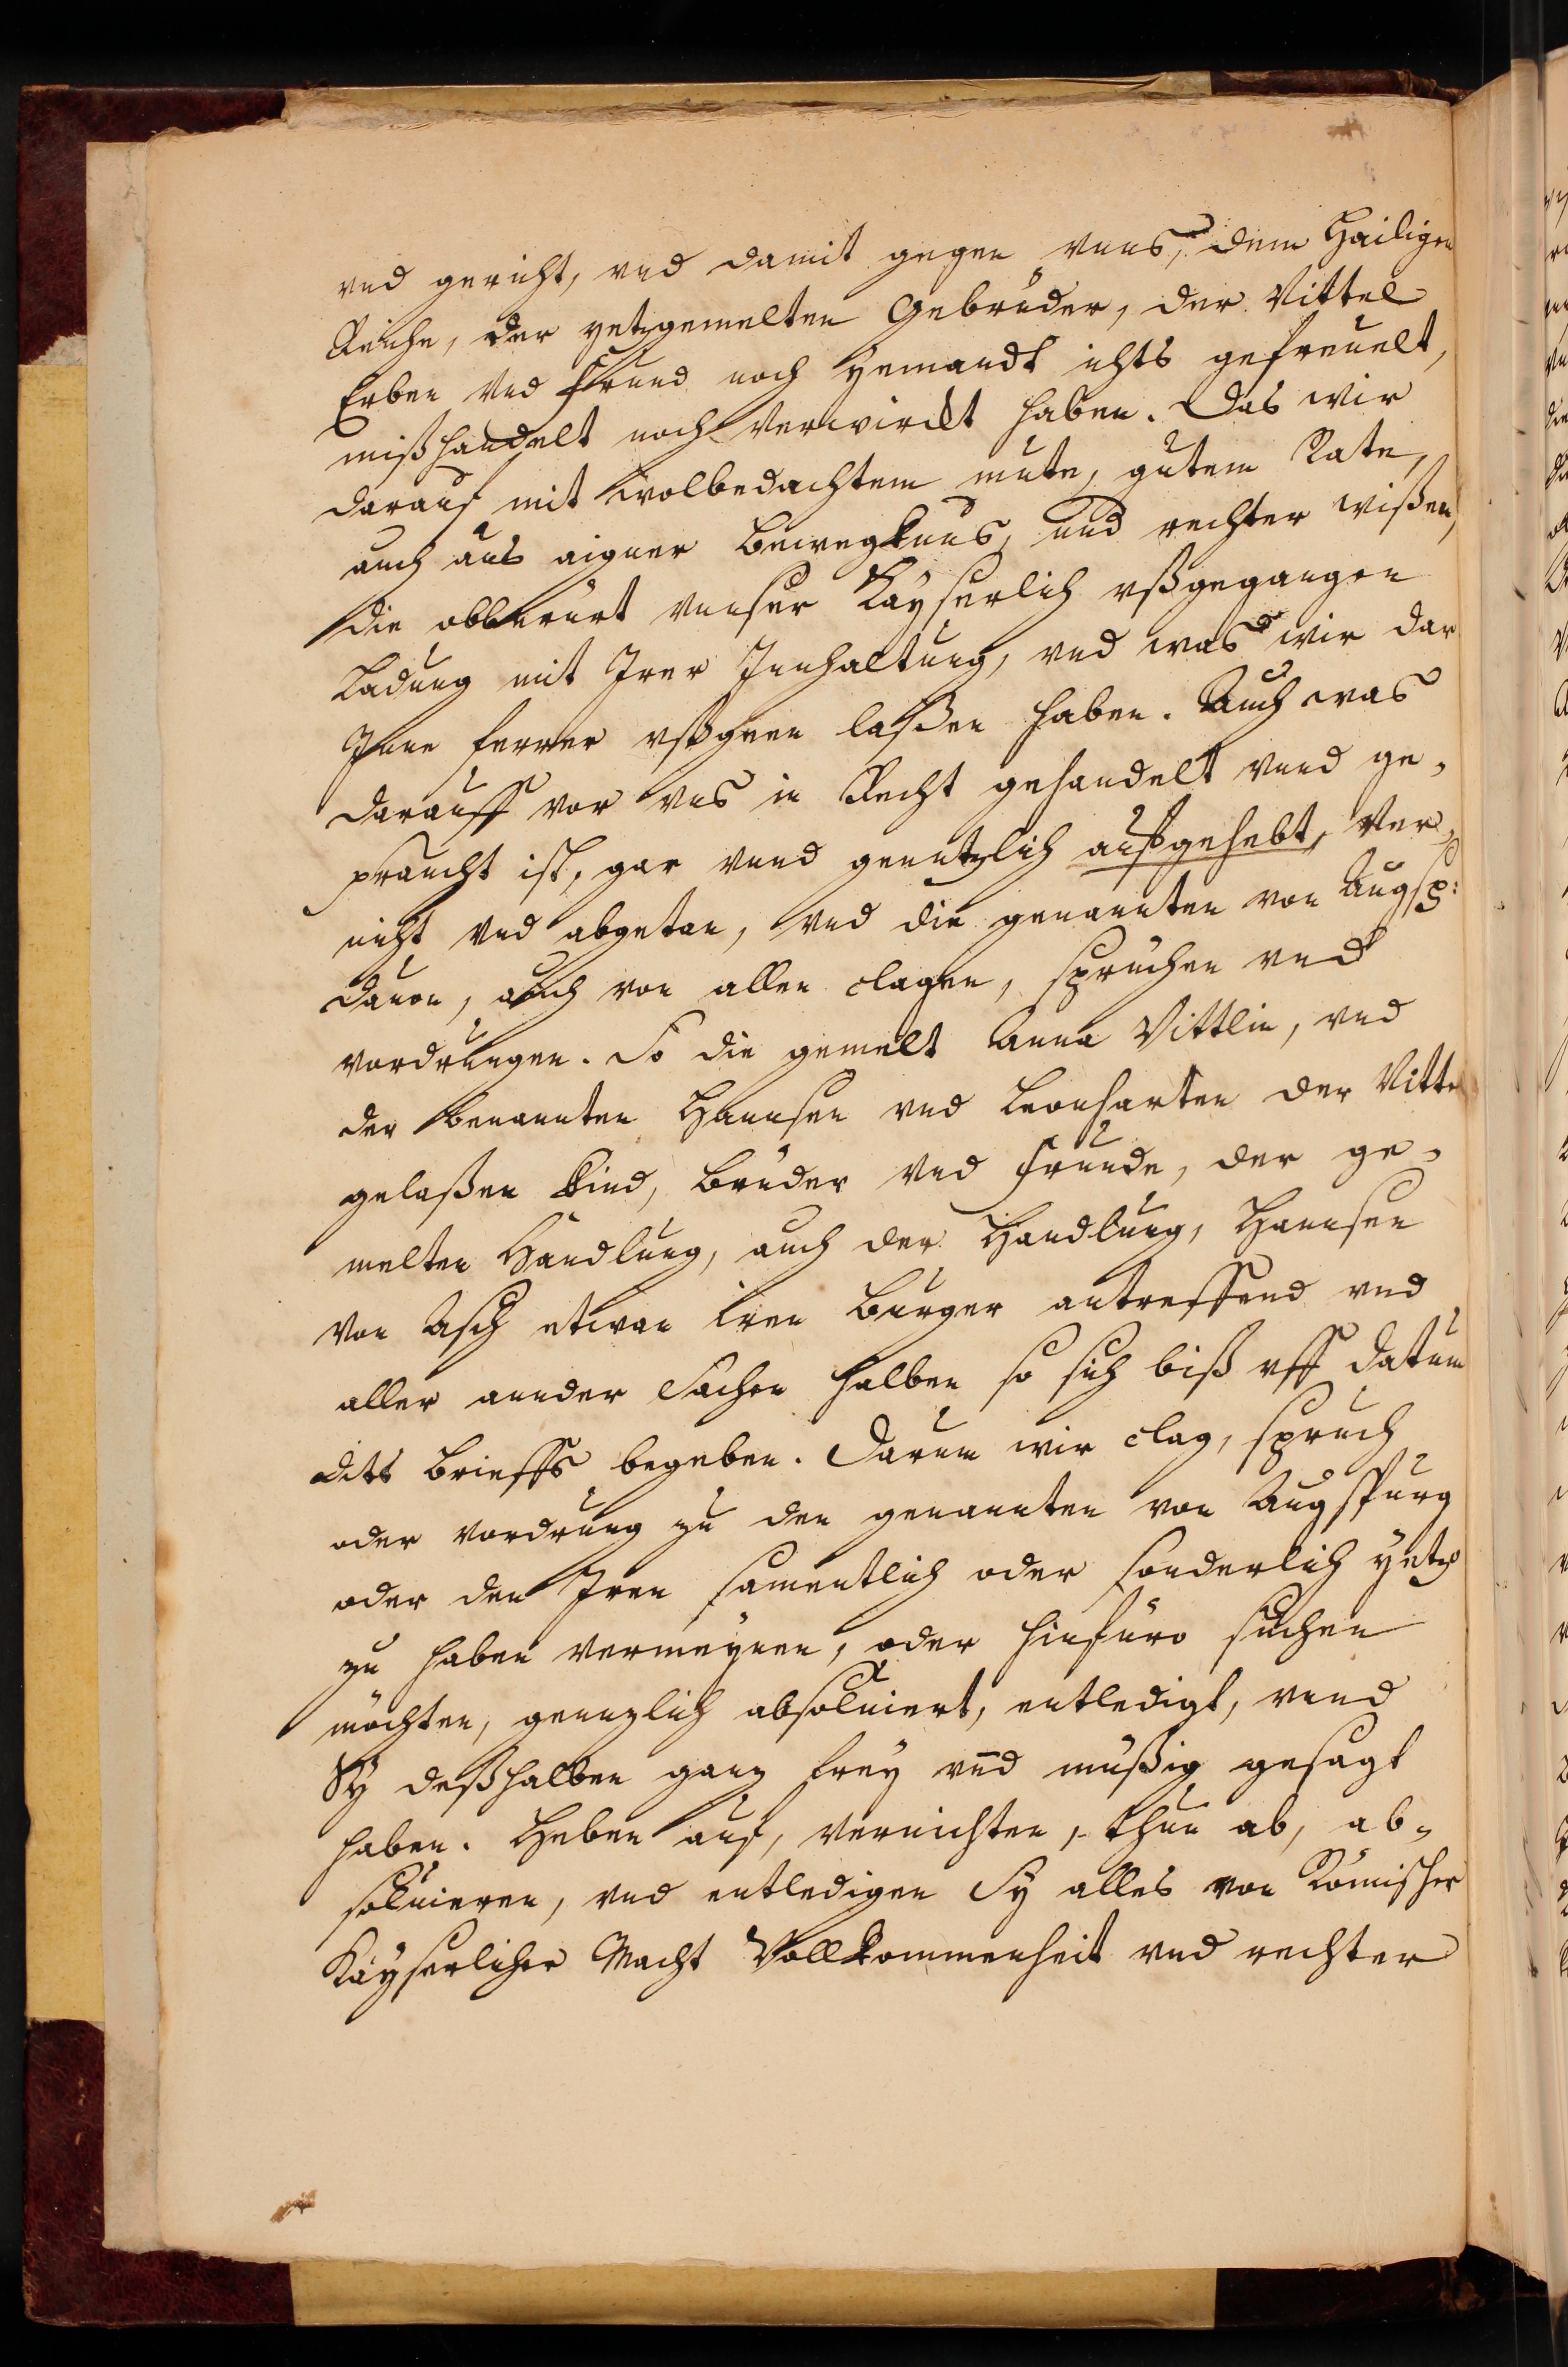 vnd gericht, vnd damit gegen vnns, dem Hailigen
Reiche, der yetzgemelten Gebrüder, der Vittel
Erben vnd frund noch yemandt ichts gefreuelt,
mißhandelt noch verwirckt haben. Das wir
darauf mit wolbedachtem mute, gutem Rate,
auch aus aigner bewegknus, und rechter wißen,
die obberürt vnnser Kayserlich vßgegangen
Ladung mit Irer Innhaltung, vnd was wir dar
Inne ferrer vßgeen laßen haben. Auch was
darauff vor vns in Recht gehandelt vnnd ge-
praucht ist, gar vnnd genntzlich aufgehebt, Ver-
nicht vnd abgetan, vnd die genannten von Augsp:
dauon, auch von allen clagen, sprüchen vnd
vordrungen. So die gemelt Anna Vittlin, vnd
der benannten Hannsen vnd Leonharten der Vittel
gelaßen kind, brüder vnd frunde, der ge-
melten Handlung, auch der Handlung, Hannsen
von Asch etwan iren burger antreffend vnd
aller annder Sachen halben so sich biß vff datum
ditts brieffs begeben. Darum wir clag, spruch
oder vordrung zu den genannten von Augspurg
oder den Iren samentlich oder sonderlich yetzo
zu haben vermeynen, oder hinfüro suchen
möchten, genntzlich absoluiert, entledigt, vnnd
Sy deßhalben ganz frey vnd müßig gesagt
haben. Heben auf, vernichten, thun ab, ab-
soluieren, vnd entledigen Sy alles von Römischer
Kayserlicher Macht Vollkommenheit vnd rechter